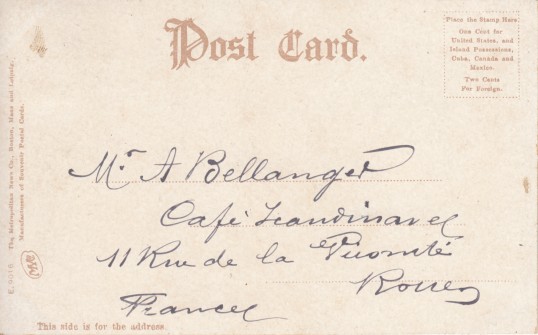 Post Card.
Place the Stamp Here
One Cent for
United States, and
Island Possessions,
Cuba, Canada and
Mexico.
Two Cents
For Foreign.
E. 9016 The Metropolitan News Co., Boston, Mass and Leipzic.
Manufacturers of Souvenir Postal Cards.
Mr. A Bellanger
Café Scandinavel
11 Rue de la Vicomté
Rouen
France
This side is for the address